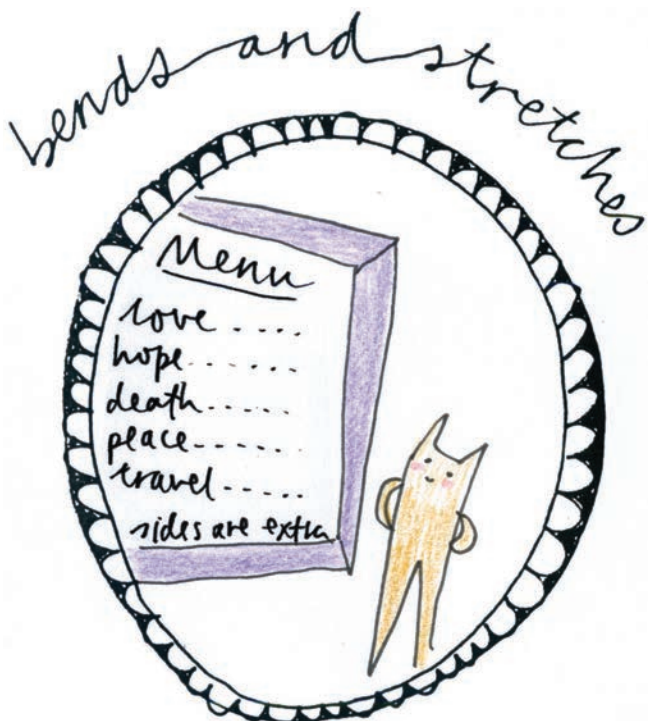 bends and stretches
Menu
love .....
hope.......
death......
peace......
travel.....
sides are extra